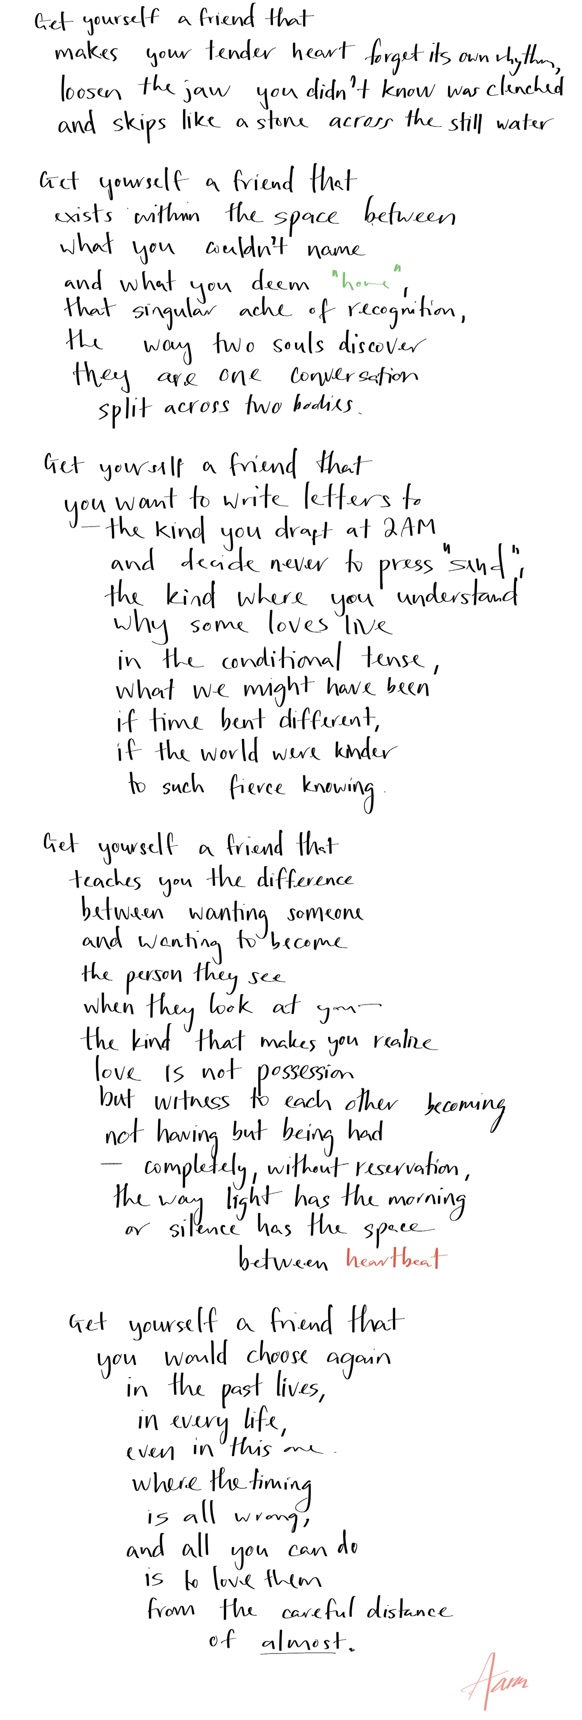 Get yourself a friend that
makes your tender heart forget its own rhythm,
loosen the jaw you didn't know was clenched
and skips like a stone across the still water
Get yourself a friend that
exists within the space between
what you couldn't name
and what you deem "home",
that singular ache of recognition,
the way two souls discover
they are one conversation
split across two bodies.
Get yourself a friend that
you want to write letters to
— the kind you draft at 2AM
and decide never to press "send",
the kind where you understand
why some loves live
in the conditional tense,
what we might have been
if time bent different,
if the world were kinder
to such fierce knowing.
Get yourself a friend that
teaches you the difference
between wanting someone
and wanting to become
the person they see
when they look at you—
the kind that makes you realize
love is not possession
but witness to each other becoming
not having but being had
— completely, without reservation,
the way light has the morning
or silence has the space
between heartbeat
Get yourself a friend that
you would choose again
in the past lives,
in every life,
even in this one.
where the timing
is all wrong,
and all you can do
is to love them
from the careful distance
of almost.